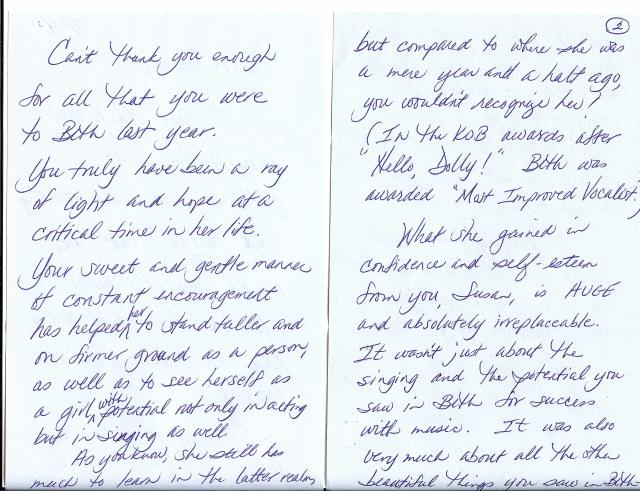 Can't thank you enough
for all that you were
to Beth last year.
You truly have been a ray
of light and hope at a
critical time in her life.
Your sweet and gentle manner
of constant encouragement
has helped her to stand taller and
on firmer ground as a person,
as well as to see herself as
a girl with potential not only in acting
but in singing as well.
As you know, she still has
much to learn in the latter realm,
2
but compared to where she was
a mere year and a half ago,
you wouldn't recognize her!
(In the KOB awards after
"Hello, Dolly!" Beth was
awarded "Most Improved Vocalist".)
What she gained in
confidence and self-esteem
from you, Susan, is HUGE
and absolutely irreplaceable.
It wasn't just about the
singing and the potential you
saw in Beth for success
with music. It was also
very much about all the other
beautiful things you saw in Beth